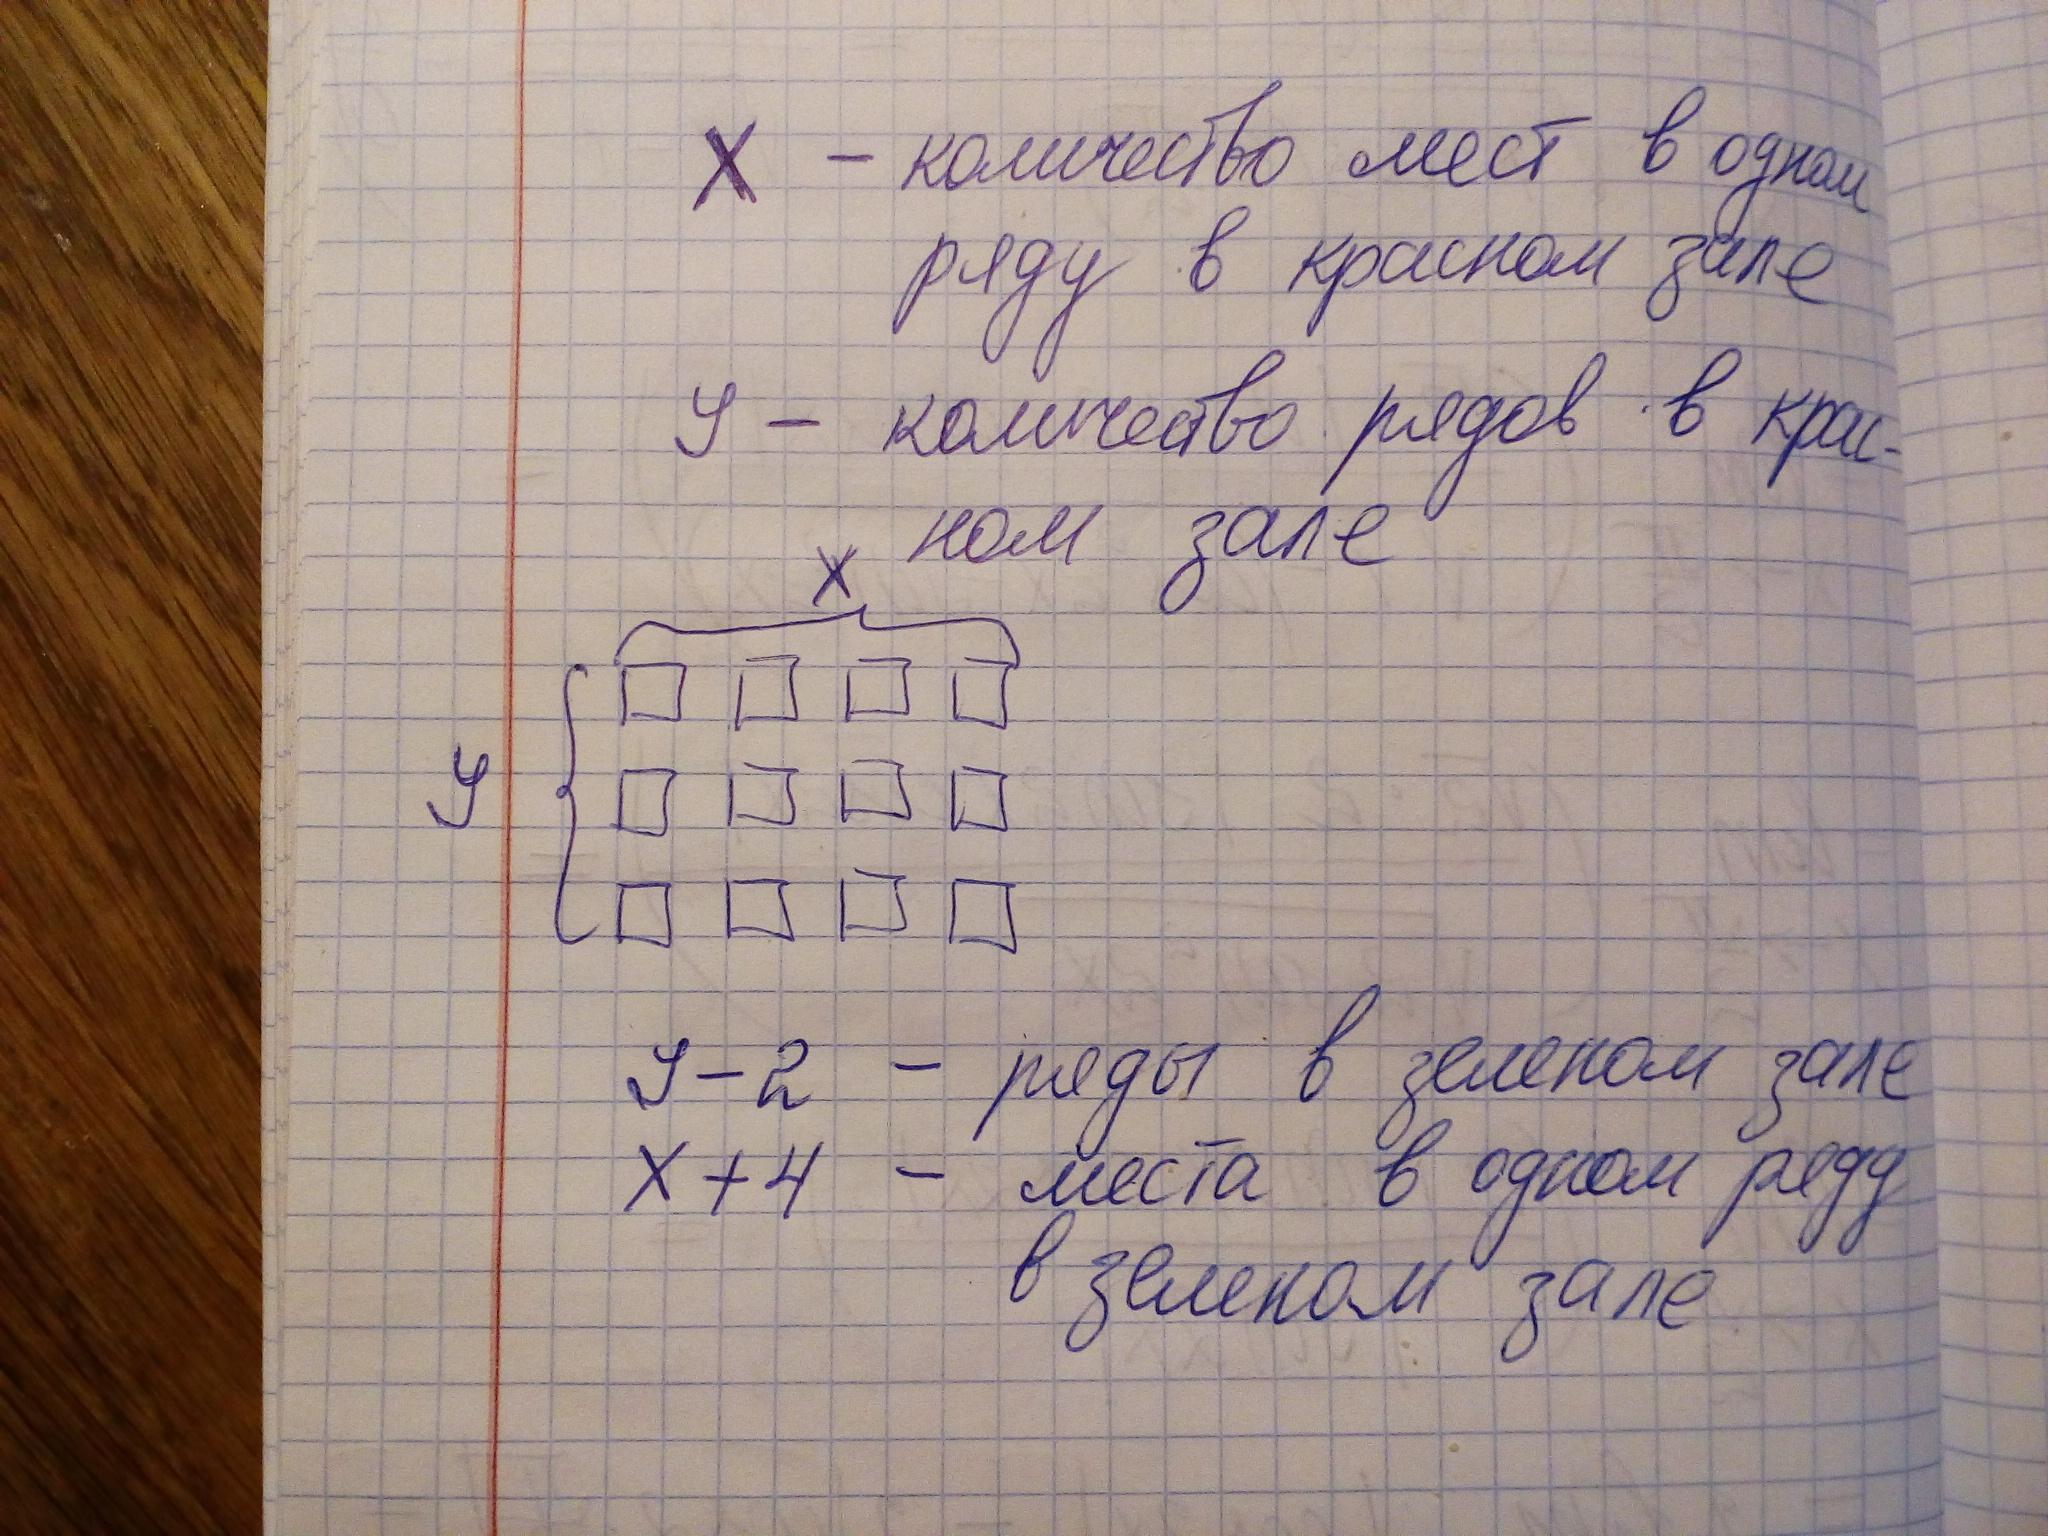 X - количество мест в одном
ряду в красном зале
y - количество рядов в крас-
ном зале
X
y
y - 2 - ряды в зеленом зале
X + 4 - места в одном ряду
в зеленом зале